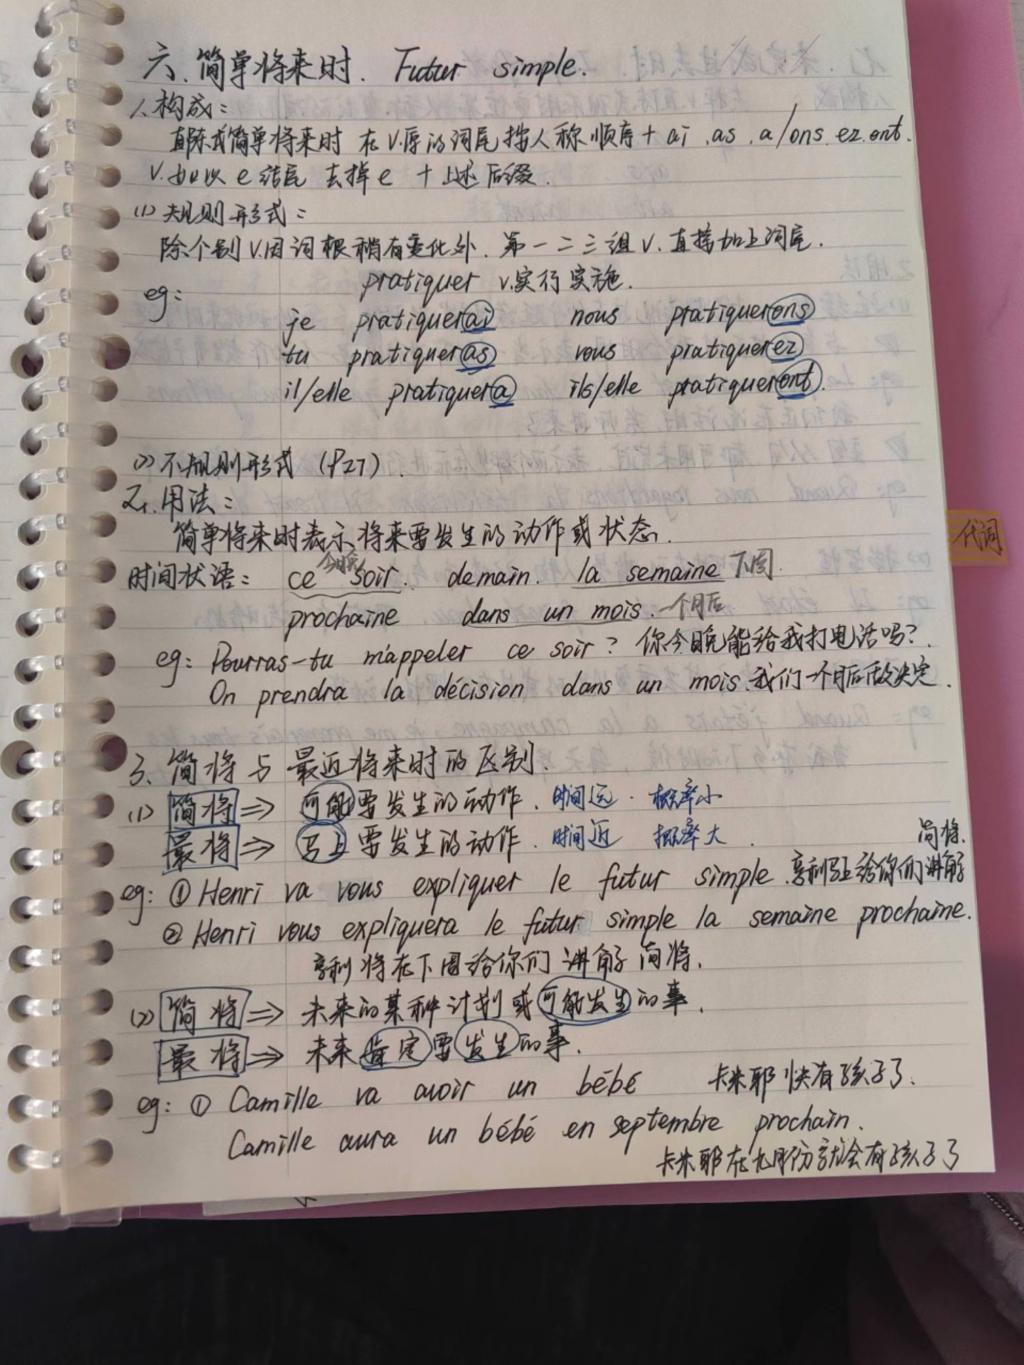 六、简单将来时. Futur simple.
1、构成:
直陈式简单将来时 在V.原的词尾按人称顺序+ ai .as .a/ons.ez.ont.
V.如以e结尾 去掉e + 上述后缀.
(1) 规则形式:
除个别V.因词根稍有变化外. 第一二三组V.直接加上词尾.
pratiquer v.实行实施.
eg:
je pratiquerai nous pratiquerons
tu pratiqueras vous pratiquerez
il/elle pratiquera ils/elle pratiqueront.
(2) 不规则形式 (P27).
2、用法:
简单将来时表示将来要发生的动作或状态.
今晚
时间状语: ce soir. demain. la semaine 下周.
prochaine dans un mois. 一个月后
eg: Pourras-tu m'appeler ce soir? 你今晚能给我打电话吗?.
On prendra la décision dans un mois.我们一个月后做决定.
3、简将与最近将来时的区别.
(1) 简将⇒ 可能要发生的动作. 时间远. 概率小
最将⇒ 马上要发生的动作. 时间近 概率大.
简将.
eg: ① Henri va vous expliquer le futur simple.亨利马上给你们讲解
② Henri vous expliquera le futur simple la semaine prochaine.
亨利将在下周给你们讲解简将.
(2) 简将⇒ 未来的某种计划或可能发生的事.
最将⇒ 未来肯定要发生的事.
eg: ① Camille va avoir un bébé 卡米耶快有孩子了.
Camille aura un bébé en septembre prochain.
卡米耶在九月份就会有孩子了
代词